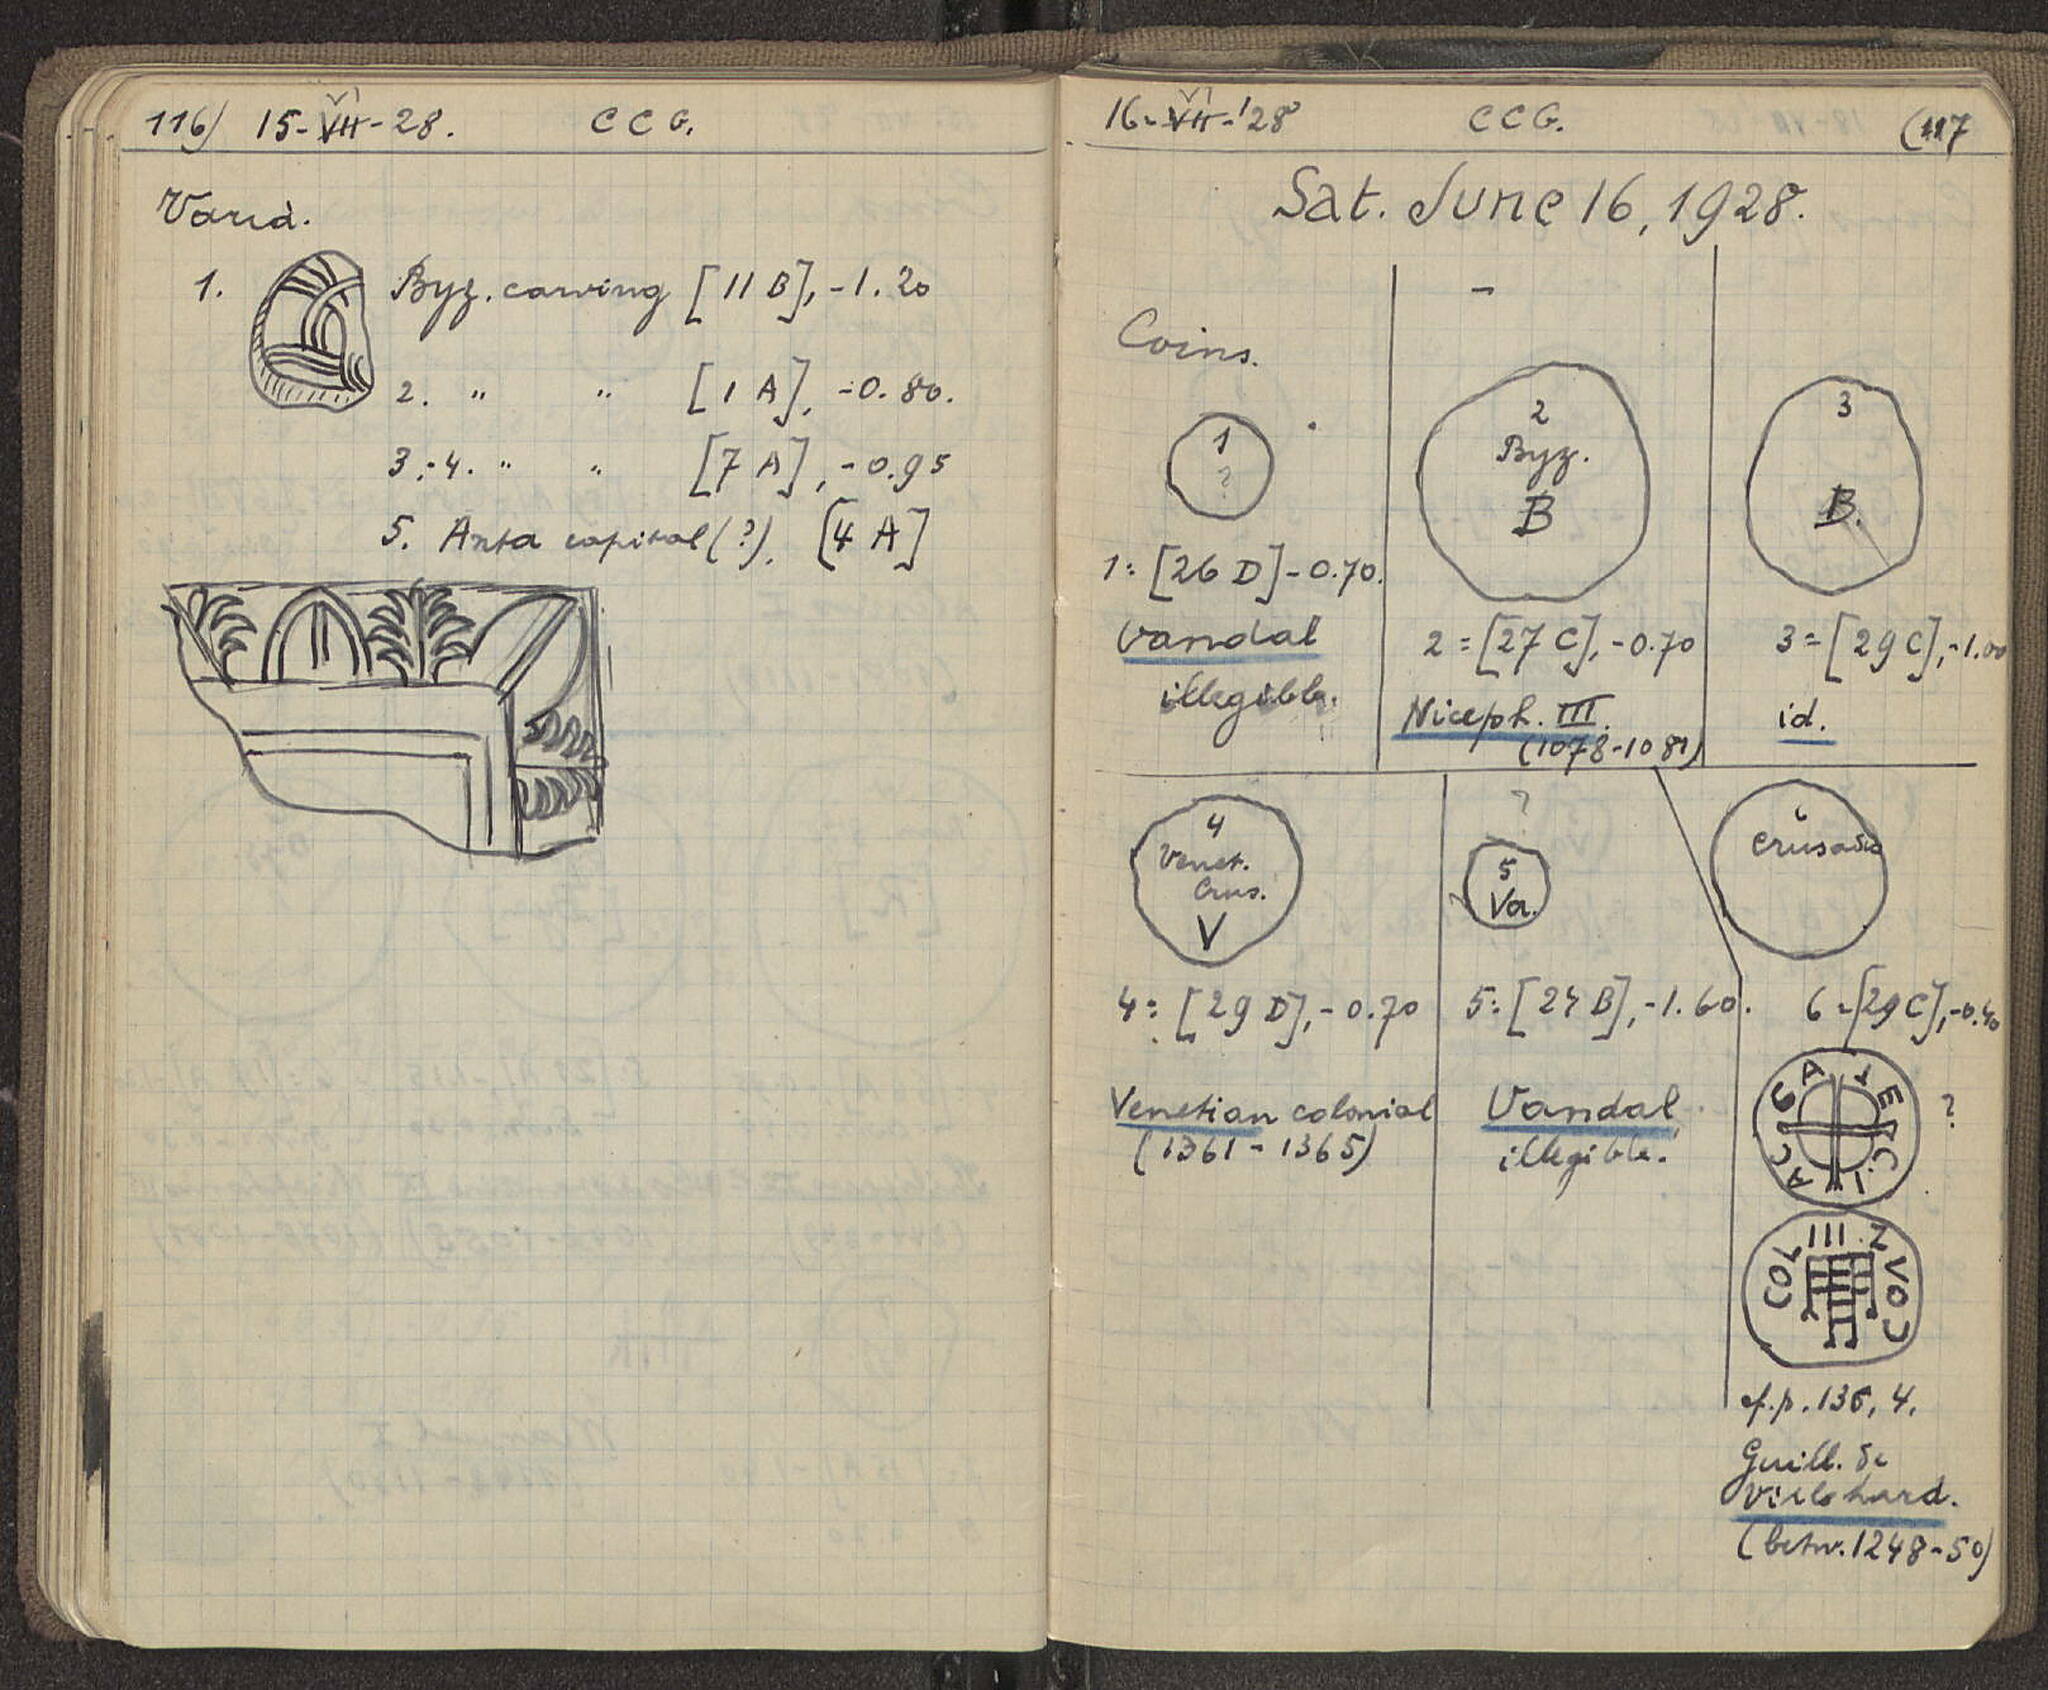 116) 15-VI-28. C C G.
Varia.
1. Byz. carving [11 B], -1.20
2. " " [1 A], -0.80.
3.-4. " " [7 A], -0.95
5. Anta capital (?). [4 A]
16-VI-'28 C C G. (117
Sat. June 16, 1928.
Coins.
1
?
2
Byz.
B
3
B.
1: [26 D] -0.70.
Vandal
illegible.
2 = [27 C], -0.70
Niceph. III.
(1078-1081)
3 = [29 C], -1.00
id.
4
Venet.
Crus.
V
?
5
Va.
6
Crusader
4: [29 D], -0.70
5: [24 B], -1.60.
6 = [29 C], -0.40
Venetian colonial
(1361-1365)
Vandal
illegible.
?
cf. p. 136, 4.
Guill. de
Villehard.
(betw. 1248-50)